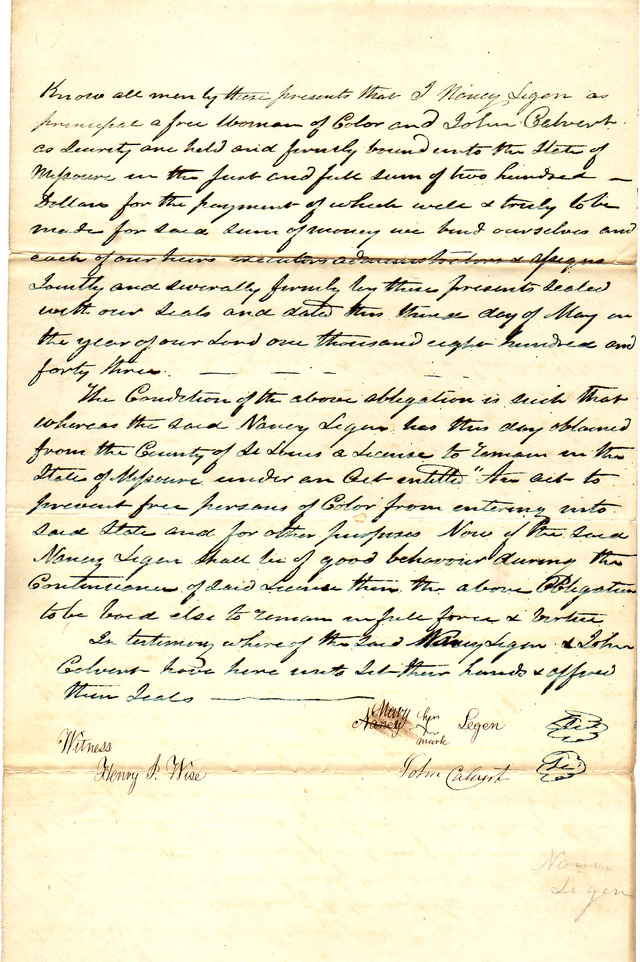 Know all men by these presents that I Nancy Legen as
principal a free Woman of Color and John Calvert
as Security are held and firmly bound unto the State of
Missouri in the just and full sum of two hundred —
Dollars for the payment of which well & truly to be
made for said sum of money we bind ourselves and
each of our heirs executors administrators & assigns
Jointly and severally firmly by these presents sealed
with our seals and dated this third day of May in
the year of our Lord one thousand eight hundred and
forty three. — — — —
The Condition of the above obligation is such that
whereas the said Nancy Legen has this day obtained
from the County of St Louis a License to remain in the
State of Missouri under an Act entitle "An act to
prevent free persons of Color from entering into
said State and for other purposes Now if the said
Nancy Legen shall be of good behaviour during the
Continuance of said License then the above Obligation
to be void else to remain in full force & virtue
In testimony where of the said Nancy Legen & John
Calvert have here unto Set their hands & affixed
their Seals —
Mary
Nancy her Legen
x
mark
Witness
Henry S. Wise John Calvert
Nancy
Legen